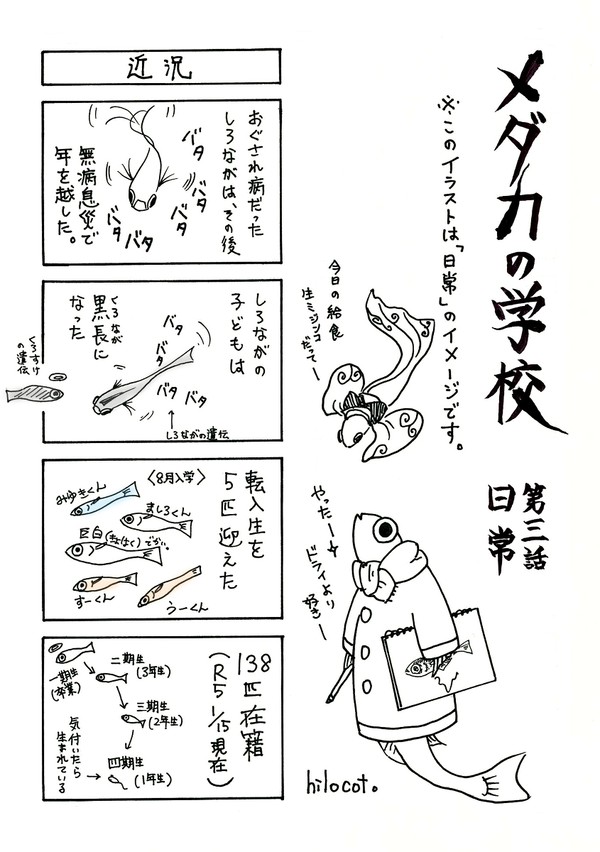 メダカの学校
第三話
日常
※このイラストは「日常」のイメージです。
今日の給食
生ミジンコ
だってー
やったー☆
ドライより
好きー
hilocot。
近況
おぐされ病だった
しろながは、その後
無病息災で
年を越した。
バタ
バタ
バタ
バタ
バタ
しろながの
子どもは
くろなが
黒長に
なった
バタ
バタ
バタ
バタ
しろながの遺伝
くろすけ
の遺伝
転入生を
5匹迎えた
〈8月入学〉
みゆきくん
ましろくん
巨白(きょはく)でぶい。
すーくん
うーくん
138匹在籍
(R5 1/15現在)
一期生
(卒業)
二期生
(3年生)
三期生
(2年生)
四期生
(1年生)
気付いたら
生まれている